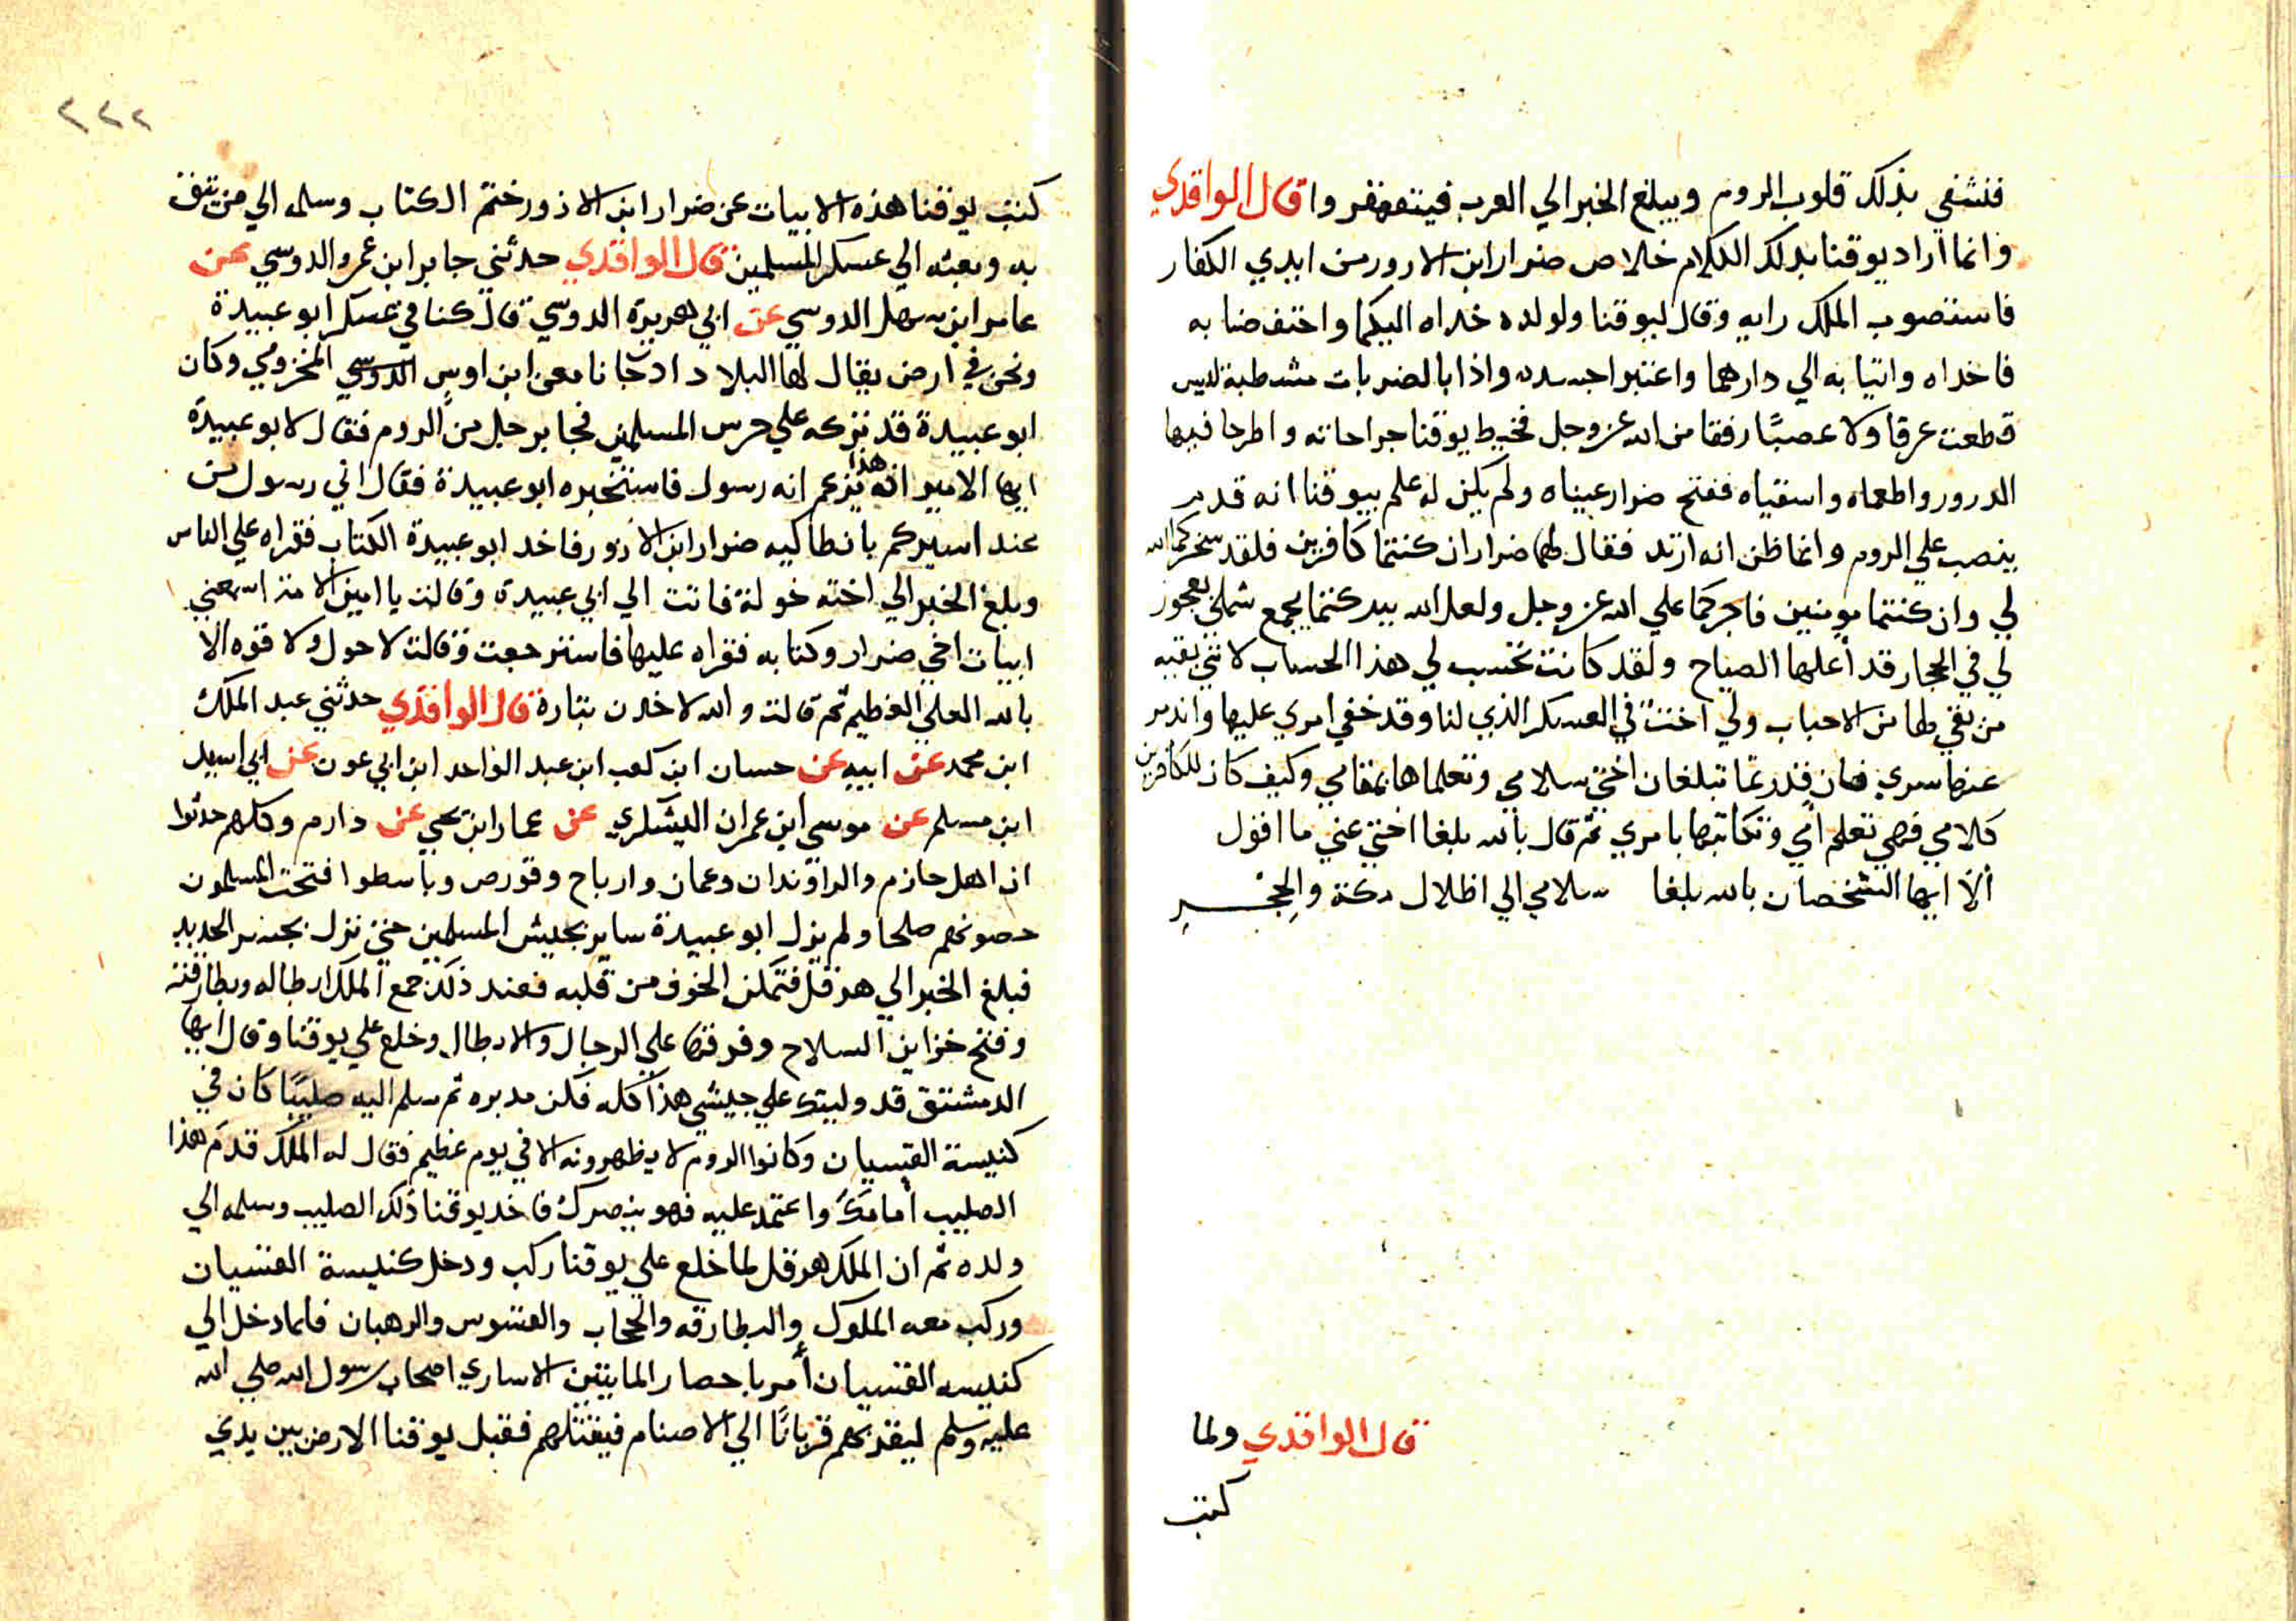 فنشفي بذلك قلوب الروم ويبلغ الخبر الي العرب فيتقهقروا قال الواقدي
وانما اراد يوقنا بذلك الكلام خلاص ضرار ابن الازور من ايدي الكفار
فاستصوب الملك رايه وقال ليوقنا ولولده خداه اليكما واحتفضا به
فاخداه واتيا به الي دارهما واعتبرا جسده واذا بالضربات مشطبة ليس
قطعت عرقا ولا عصبًا رفقا من الله عز وجل فخيط يوقنا جراحاته واطرحا فيها
الدرور واطعماه واسقياه ففتح ضرار عيناه ولم يكن له علم بيوقنا انه قدم
ينصب علي الروم وانما ظن انه ارتد فقال لهما ضرار ان كنتما كافرين فلقد سخركما الله
لي وان كنتما مومنين فاجركما علي الله عز وجل ولعل الله ببركتما يجمع شملي بعجوز
لي في الحجاز قد أعلها الصياح ولقد كانت تحتسب لي هذا الحساب لانني بقيه
من بقي لها من الاحباب ولي اختٌ في العسكر الذي لنا وقد خفي امري عليها واندر
عنها سري فان قدرتما تبلغان اختي سلامي وتعلماها بمقامي وكيف كان للكافرين
كلامي فهي تعلم أمي وتكاتبها بامري ثم قال بالله بلغا اختي عني ما اقول
ألا ايها الشخصان بالله بلغا سلامي الي اظلال مكة والحجر
قال الواقدي ولما
كتب
٢٢٢
كتب يوقنا هذه الابيات عن ضرار ابن الازور ختم الكتاب وسلمه الي من يثق
به وبعثه الي عسكر المسلمين قال الواقدي حدثني جابر ابن عمرو الدوسي عن
عامر ابن سهل الدوسي عن ابي هريرة الدوسي قال كنا في عسكر ابو عبيدة
ونحن في ارض يقال لها البلاد اد جانا معن ابن اوس الدوسي المخزومي وكان
ابو عبيدة قد تركه علي حرس المسلمين فجا برجل من الروم فقال لابو عبيدة
ايها الامير ان هذا يزعم انه رسول فاستخبره ابو عبيدة فقال اني رسول من
عند اسيركم بانطاكيه ضرار ابن الازور فاخد ابو عبيدة الكتاب فقراه علي الناس
وبلغ الخبر الي اخته خولة فاتت الي ابي عبيدة وقالت يا امين الامة اسمعني
ابيات اخي ضرار وكتابه فقراه عليها فاسترجعت وقالت لا حول ولا قوه الا
بالله العلي العظيم ثم قالت والله لاخدن بثاره قال الواقدي حدثني عبد الملك
ابن محمد عن ابيه عن حسان ابن كعب ابن عبد الواحد ابن ابي عون عن ابي اسيد
ابن مسلم عن موسي ابن عمران اليشكري عن عمار ابن يحيي عن دارم وكلهم حدثوا
ان اهل حازم والراوندان وعمان وارباح وقورص وباسطوا فتحت المسلمون
حصونهم صلحا ولم يزل ابو عبيدة ساير بجيش المسلمين حتي نزل بجسر الحديد
فبلغ الخبر الي هرقل فتمكن الخوف من قلبه فعند ذلك جمع الملك ابطاله وبطارقته
وفتح خزاين السلاح وفرقها علي الرجال والابطال وخلع علي يوقنا وقال ايها
الدمشتق قد وليتك علي جيشي هذا كله فكن مدبره ثم سلم اليه صليبًا كان في
كنيسة القسيان وكانوا الروم لا يظهرونه الا في يوم عظيم فقال له الملك قدم هذا
الصليب أمامك واعتمد عليه فهو ينصرك فاخد يوقنا ذلك الصليب وسلمه الي
ولده ثم ان الملك هرقل لما خلع علي يوقنا ركب ودخل كنيسة القسيان
وركب معه الملوك والبطارقه والحجاب والقسوس والرهبان فلما دخل الي
كنيسه القسيان أمر باحصار المايتين الاساري اصحاب رسول الله صلي الله
عليه وسلم ليقدبهم قربانًا الي الاصنام فيقتلهم فقبل يوقنا الارض بين يدي